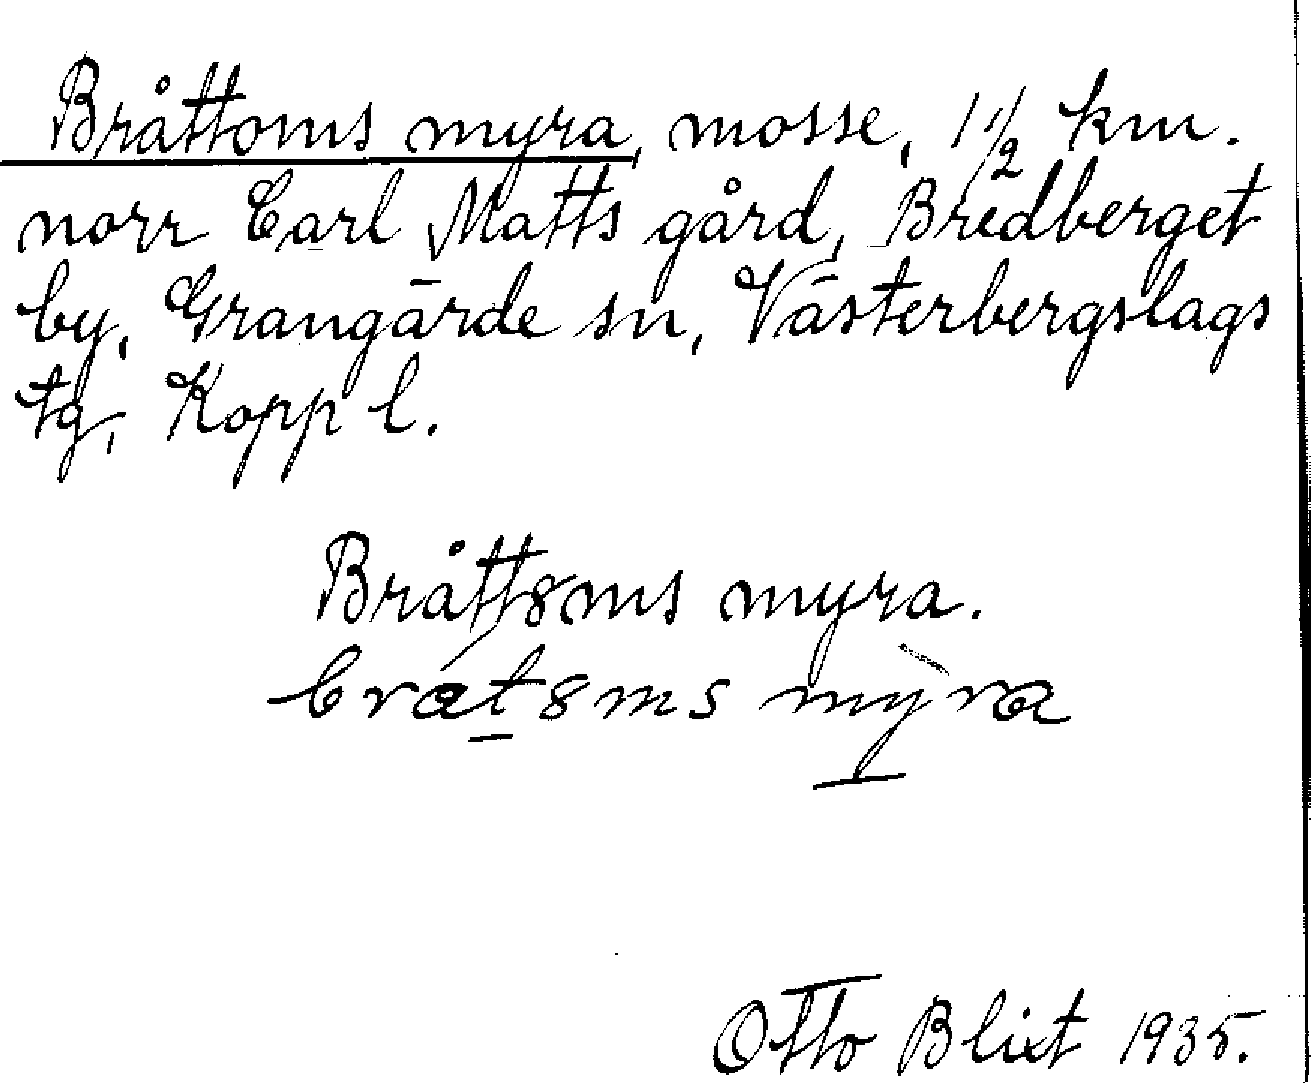 Bråttoms myra, mosse, 1 1/2 km.
norr Carl Matts gård, Bredberget
by, Grangärde sn, Västerbergslags
tg, Kopp l.
Brått8ms myra.
bråt8ms myra
Otto Blixt 1935.